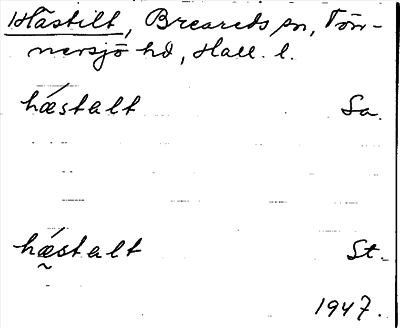 Hästilt, Breareds sn, Tön-
nersjö hd, Hall. l.
hǽstalt Sa.
hǽ̰stalt St.
1947.